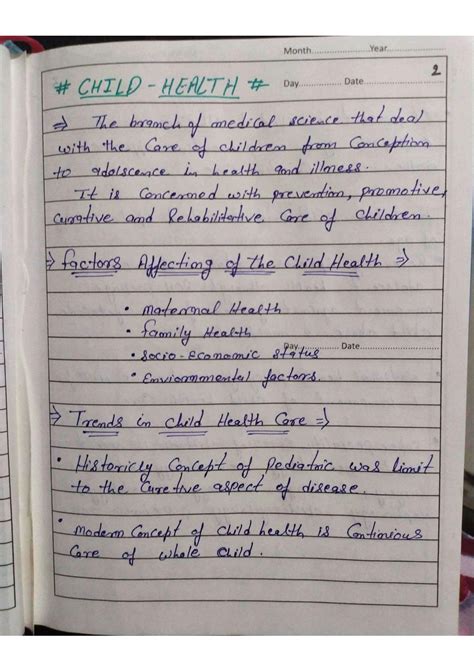 Month.................. Year..................
2
# CHILD - HEALTH # Day............... Date..................
⇒ The branch of medical science that deal
with the Care of children from Conception
to adolscence in health and illness.
It is Concerned with prevention, promotive,
Curative and Rehabilitative Care of Children.
⇒ factors Affecting of the Child Health ⇒
• Maternal Health
• family Health
Day............... Date..................
• Socio-economic status
• Enviornmental factors.
⇒ Trends in Child Health Care ⇒
• Historicly Concept of Pediatric was limit
to the Curetive aspect of disease.
• Modern Concept of Child health is Continious
Care of whole Child.